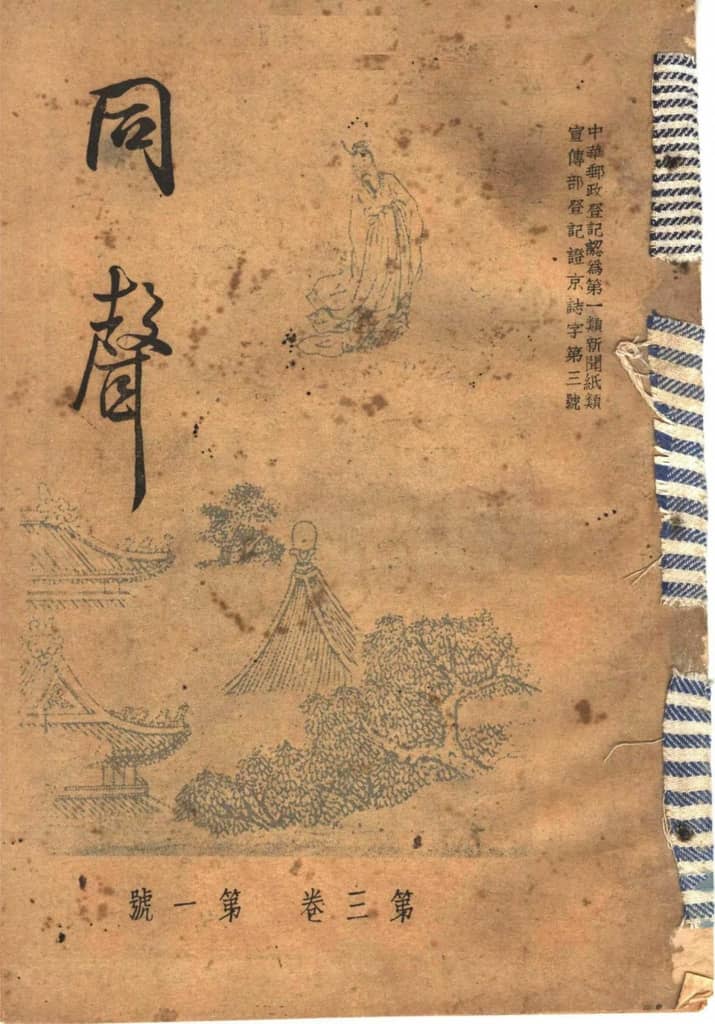 中華郵政登記認為第一類新聞紙類
宣傳部登記證京誌字第三號
同聲
第三卷 第一號